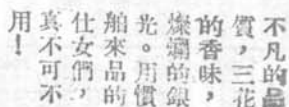 不凡的品
質，三花
的香味，
燦爛的銀
光。用慣
舶來品的
仕女們，
真不可不
用！